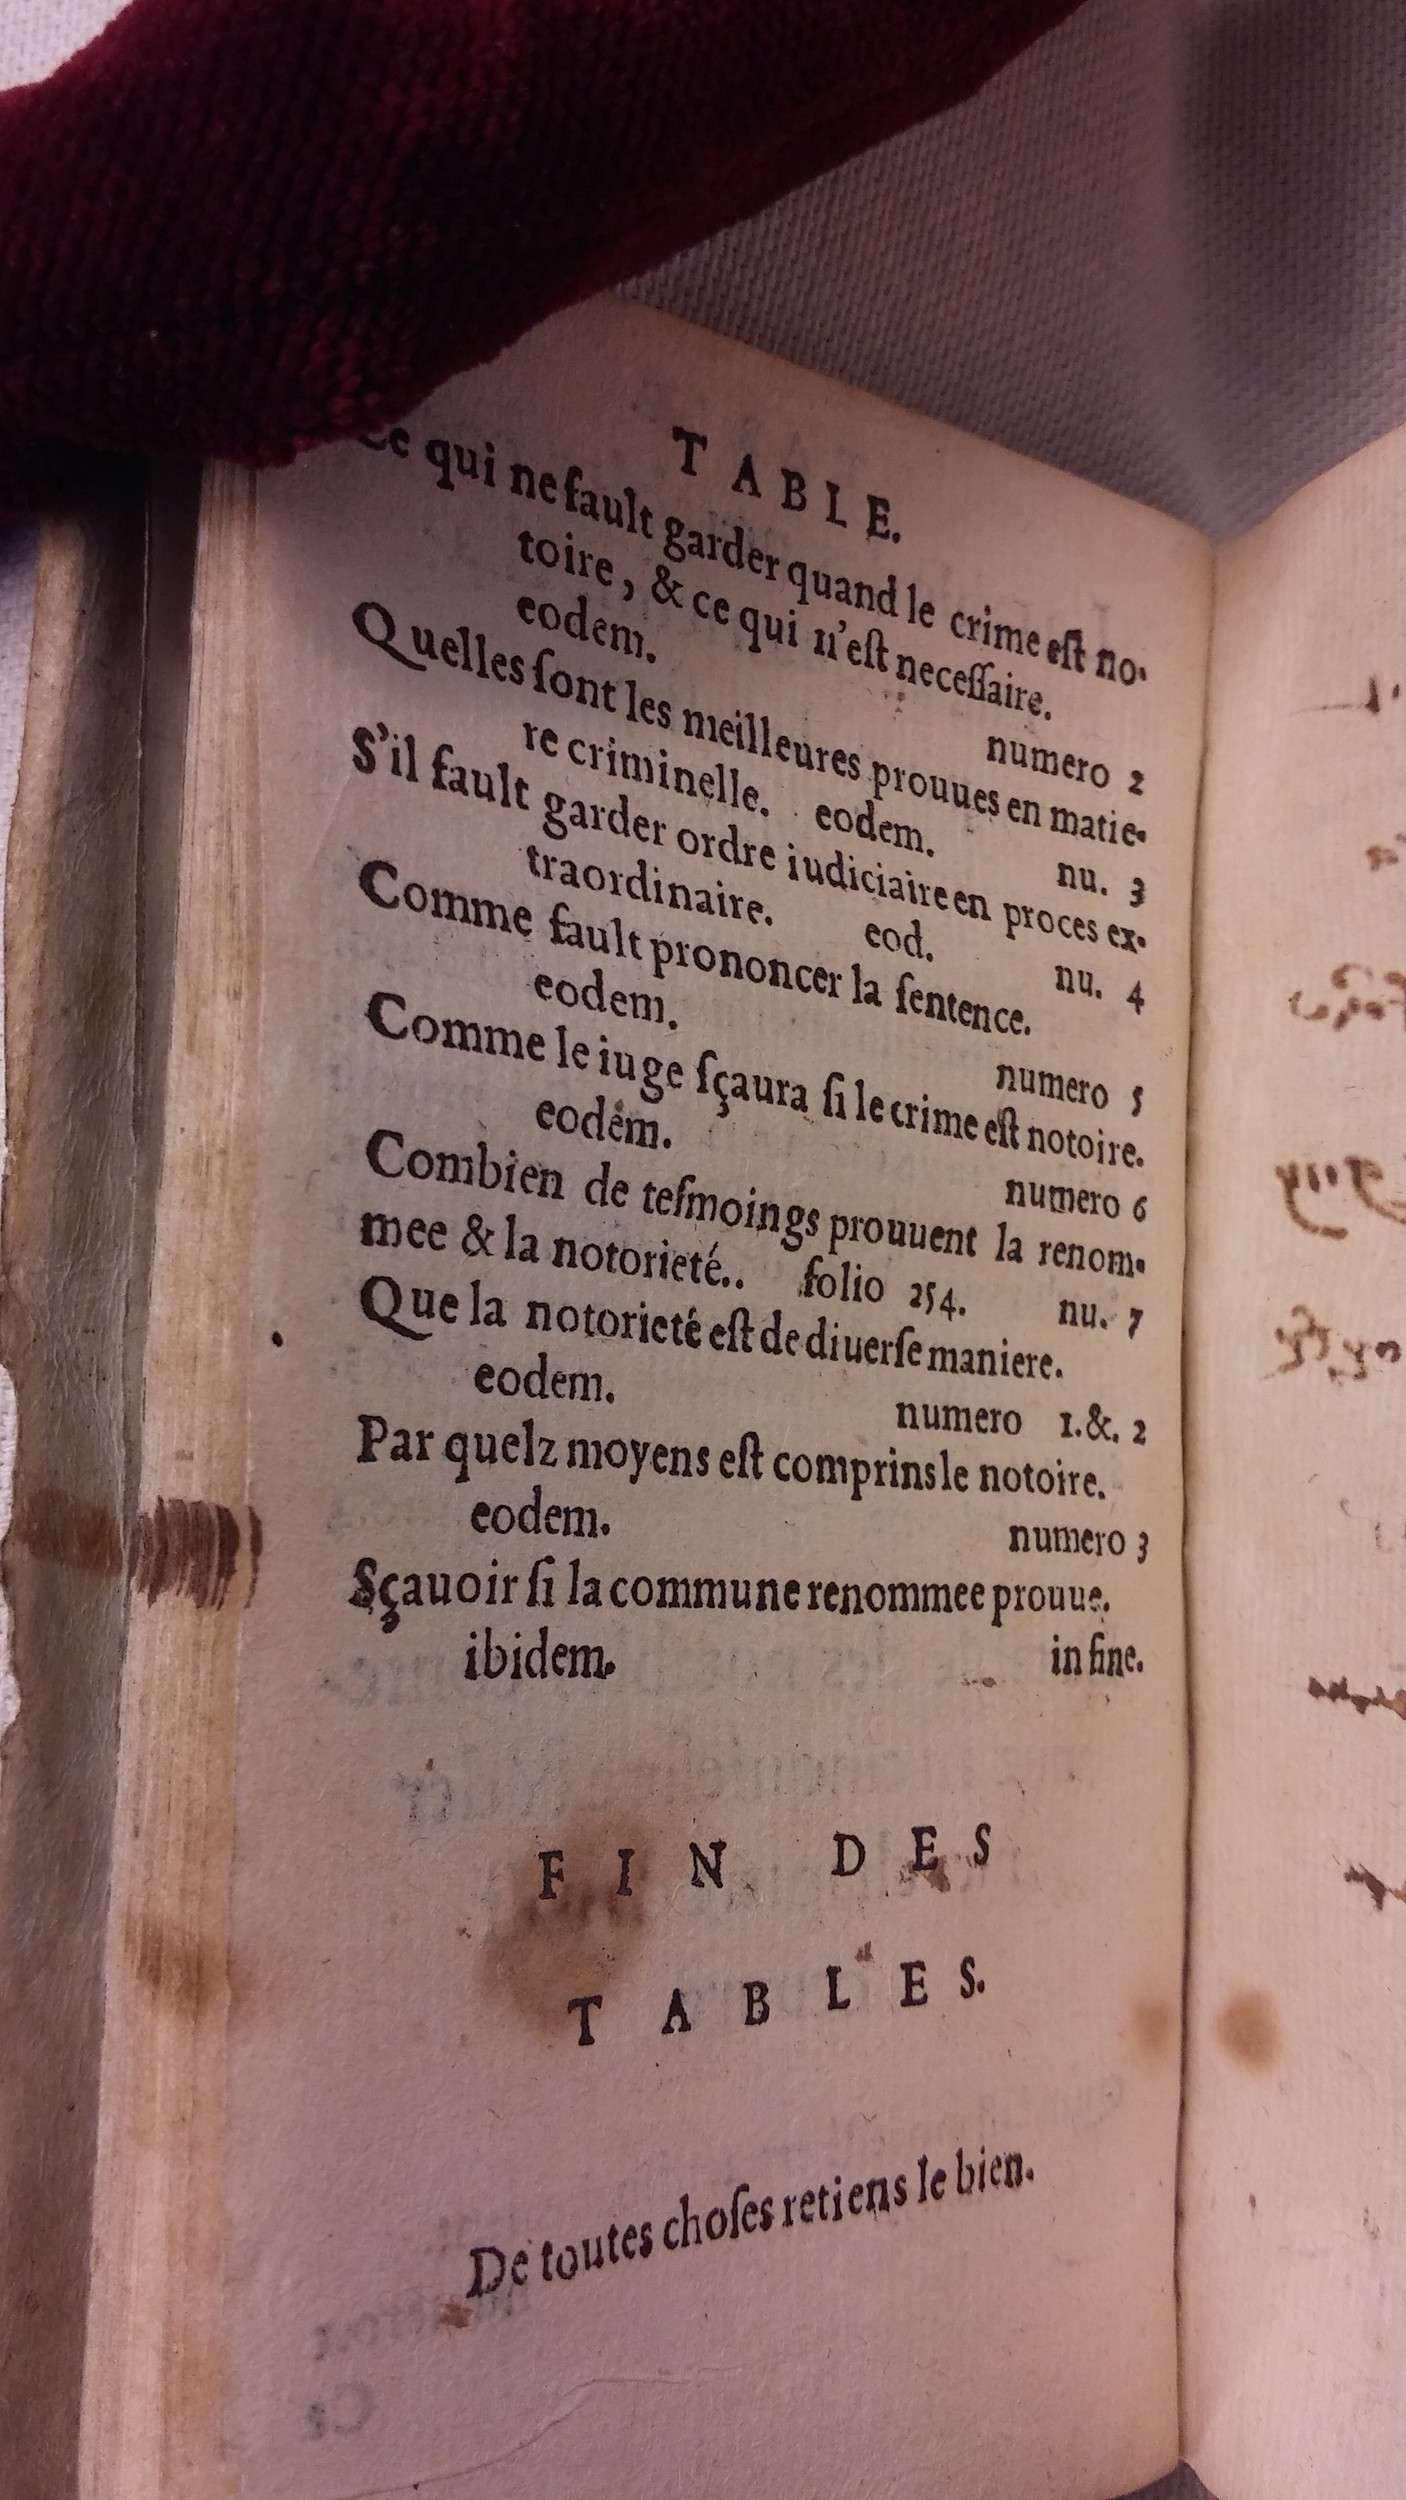 TABLE.
Ce qui ne fault garder quand le crime est no-
toire, & ce qui n'est necessaire.
eodem. numero 2
Quelles sont les meilleures prouues en matie-
re criminelle. eodem. nu. 3
S'il fault garder ordre iudiciaire en proces ex-
traordinaire. eod. nu. 4
Comme fault prononcer la sentence.
eodem. numero 5
Comme le iuge sçaura si le crime est notoire.
eodem. numero 6
Combien de tesmoings prouuent la renom-
mee & la notorieté.. folio 254. nu. 7
Que la notorieté est de diuerse maniere.
eodem. numero 1.&. 2
Par quelz moyens est comprins le notoire.
eodem. numero 3
Sçauoir si la commune renommee prouue.
ibidem. in fine.
FIN DES
TABLES.
De toutes choses retiens le bien.